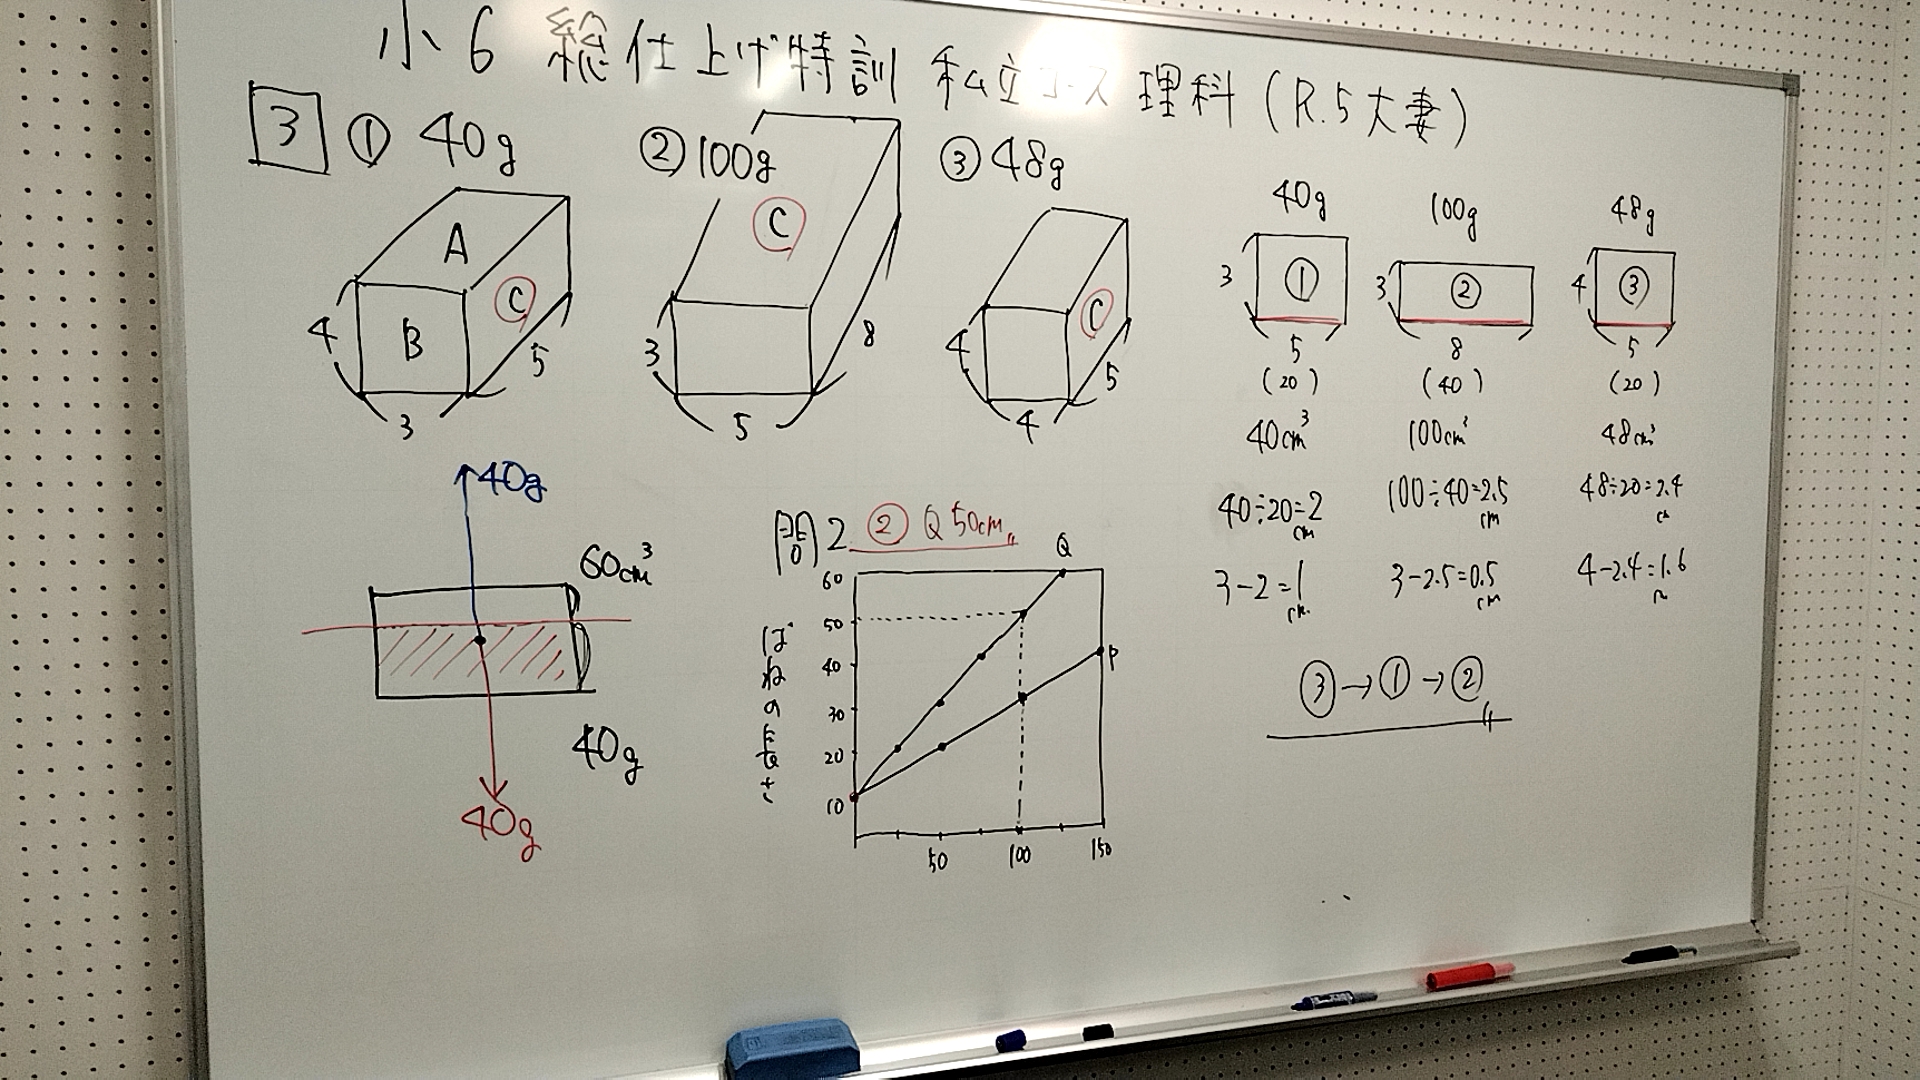 小6 総仕上げ特訓 私立コース 理科 (R.5大妻)
3 ① 40g ② 100g ③ 48g
A
B
C
4
3
5
C
3
5
8
C
4
4
5
40g 100g 48g
3 ① 3 ② 4 ③
5 8 5
(20) (40) (20)
40cm³ 100cm³ 48cm³
40÷20=2cm 100÷40=2.5cm 48÷20=2.4cm
3-2=1cm 3-2.5=0.5cm 4-2.4=1.6cm
③→①→②
40g
60cm³
40g
40g
問2 ② Q 50cm
Q
P
ばねの長さ
60
50
40
30
20
10
50 100 150